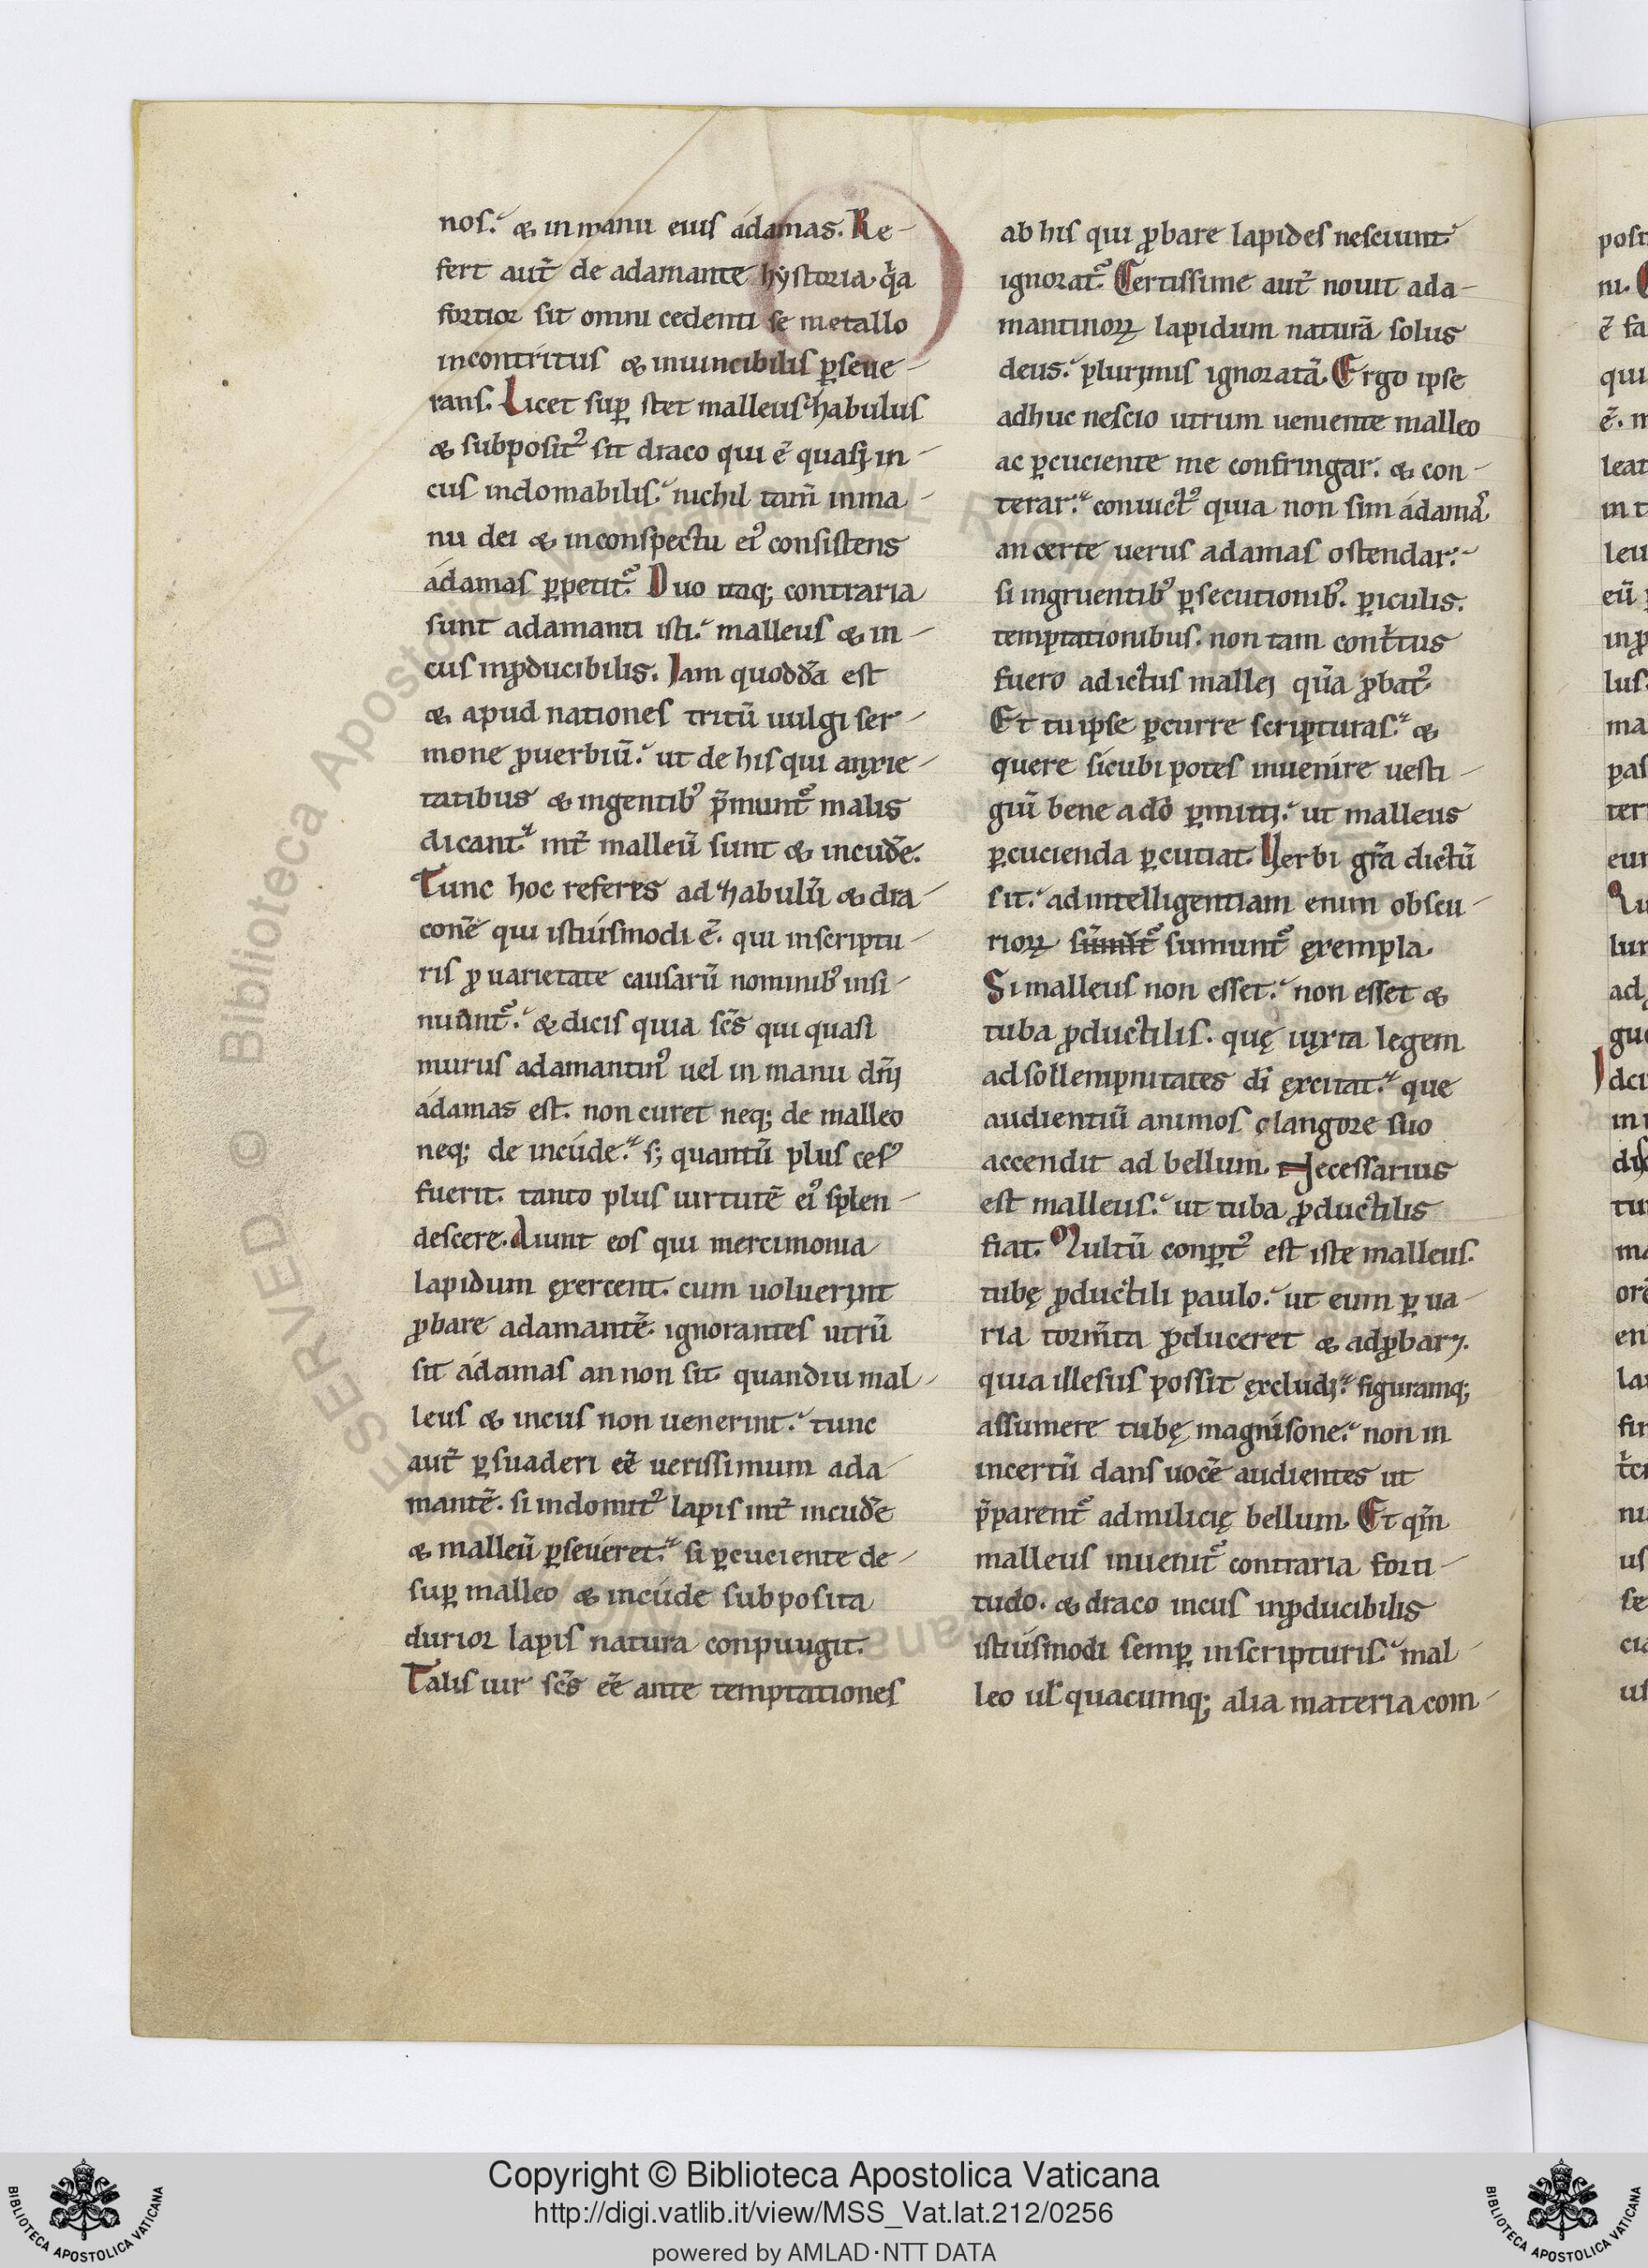 nos. & in manu eius ádamas. Re-
fert aut̃ de adamante hẏstoria. q̃a
fortior sit omni cedenti se metallo
incontritus & inuincibilis ꝑseue-
rans. Licet suꝑ stet malleus zhabulus
& subposit᷒ sit draco qui ẽ quasi in-
cus indomabilis. nichil tam̃ in ma-
nu dei & inconspectu ei᷒ consistens
ádamas ꝑpetit᷒. Duo itaq; contraria
sunt adamanti isti. malleus & in-
cus inꝓducibilis. Iam quoddã est
& apud nationes tritũ uulgi ser-
mone ꝓuerbiũ. ut de his qui anxie-
tatibus & ingentib᷒ p̃munt᷒ malis
dicant᷒ int̃ malleũ sunt & incudẽ.
Tunc hoc referes ad zhabulũ & dra-
conẽ qui istiúsmodi ẽ. qui inscriptu-
ris ꝓ uarietate causarũ nominib᷒ insi-
nuant᷒. & dicis quia sc̃s qui quasi
murus adamantin᷒ uel in manu dñi
ádamas est. non curet neq; de malleo
neq; de incúde. s; quantũ plus ces᷒
fuerit. tanto plus uirtutẽ ei᷒ splen-
descere. Aiunt eos qui mercimonia
lapidum ęxercent. cum uoluerint
ꝓbare adamantẽ. ignorantes utrũ
sit ádamas an non sit. quandiu mal-
leus & incus non uenerint. tunc
aut̃ ꝑsuaderi eẽ uerissimum ada-
mantẽ. si indomit᷒ lapis int̃ incudẽ
& malleũ ꝑseuéret. si ꝑcuciente de-
suꝑ malleo & incúde subposita
durior lapis natura conpungit.
Talis uir sc̃s eẽ ante temptationes
ab his qui ꝓbare lapides nesciunt
ignorat᷒. Certissime aut̃ nouit ada-
mantinoꝝ lapidum naturã solus
deus. plurimis ignoratã. Ergo ipse
adhuc nescio utrum ueniente malleo
ac ꝑcuciente me confringar. & con-
terar. conuict᷒ quia non sim ádamas
an certe uerus adamas ostendar.
si ingruentib᷒ ꝑsecutionib᷒. ꝑiculis.
temptationibus. non tam cont̃tus
fuero adictus mallei quã ꝓbat᷒.
Et tu ipse ꝑcurre scripturas. &
quere sícubi potes inuenire uesti-
giũ bene a dõ ꝑmitti. ut malleus
ꝑcucienda ꝑcutiat. Uerbi gr̃a dictũ
sit. ad intelligentiam enim obscu-
rioꝝ sumunt᷒ ęxempla.
Si malleus non esset. non esset &
tuba ꝓductilis. quę iuxta legem
ad sollempnitates dĩ ęxcitat. que
audientiũ animos clangore suo
accendit ad bellum. Necessarius
est malleus. ut tuba ꝓductilis
fiat. Multũ conꝑt᷒ est iste malleus.
tubę ꝓductili paulo. ut eum ꝑ ua-
ria torm̃ta ꝓduceret & adꝓbari.
quia illesus possit ęxcludi. figuramq;
assumere tubę magnísone. non in
incertũ dans uocẽ audientes ut
p̃parent᷒ ad milicię bellum. Et qm̃
malleus inuenit᷒ contraria forti-
tudo. & draco incus inꝓducibilis
istiúsmodi semꝑ inscripturis. mal-
leo ul̃ quacumq; alia materia com-
Copyright © Biblioteca Apostolica Vaticana
http://digi.vatlib.it/view/MSS_Vat.lat.212/0256
powered by AMLAD·NTT DATA